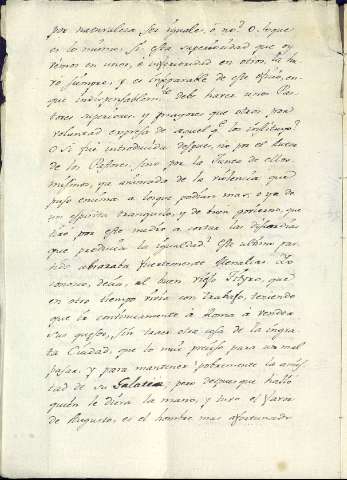 por naturaleza ser iguales, ó no? O lo que
es lo mismo, si esta superioridad que oy
vemos en unos, é inferioridad en otros, la hu-
vo siempre, y es inseparable de este oficio, en
que indispensablem.te debe haver unos Pas-
tores superiores y mayores que otros por
voluntad expresa de aquel q.e los instituyó?
O si fué introducida despues, no por el dueño
de los Pastores, sino por la Junta de ellos
mismos, ya animada de la violencia que
puso encima a los que podian mas, o ya de
un espiritu tranquilo, y de buen govierno, que
quiso por este medio a cortar las discordias
que producia la igualdad? Este ultimo par-
tido abrazaba fuertemente Menalca: Yo
conozco, decia, al buen viejo Titiro, que
en otro tiempo vivia con trabajo, teniendo
que ir continuamente à Roma à vender
sus quesos, sin traer otra cosa de la ingra-
ta Ciudad, que lo mui preciso para un mal
pasar, y para mantener pobremente la amis-
tad de su Galatea; pero despues que halló
quien le diera la mano, y tuvo el favor
de Augusto, es el hombre mas afortunado